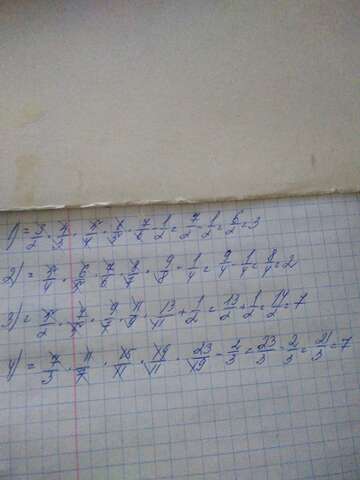 1) = 3/2 · 4/3 · 5/4 · 6/5 · 7/6 - 1/2 = 7/2 - 1/2 = 6/2 = 3
2) = 5/4 · 6/5 · 7/6 · 8/7 · 9/8 - 1/4 = 9/4 - 1/4 = 8/4 = 2
3) = 5/2 · 7/5 · 9/7 · 11/9 · 13/11 + 1/2 = 13/2 + 1/2 = 14/2 = 7
4) = 7/3 · 11/7 · 15/11 · 19/ · 23/19 - 2/3 = 23/3 - 2/3 = 21/3 = 7